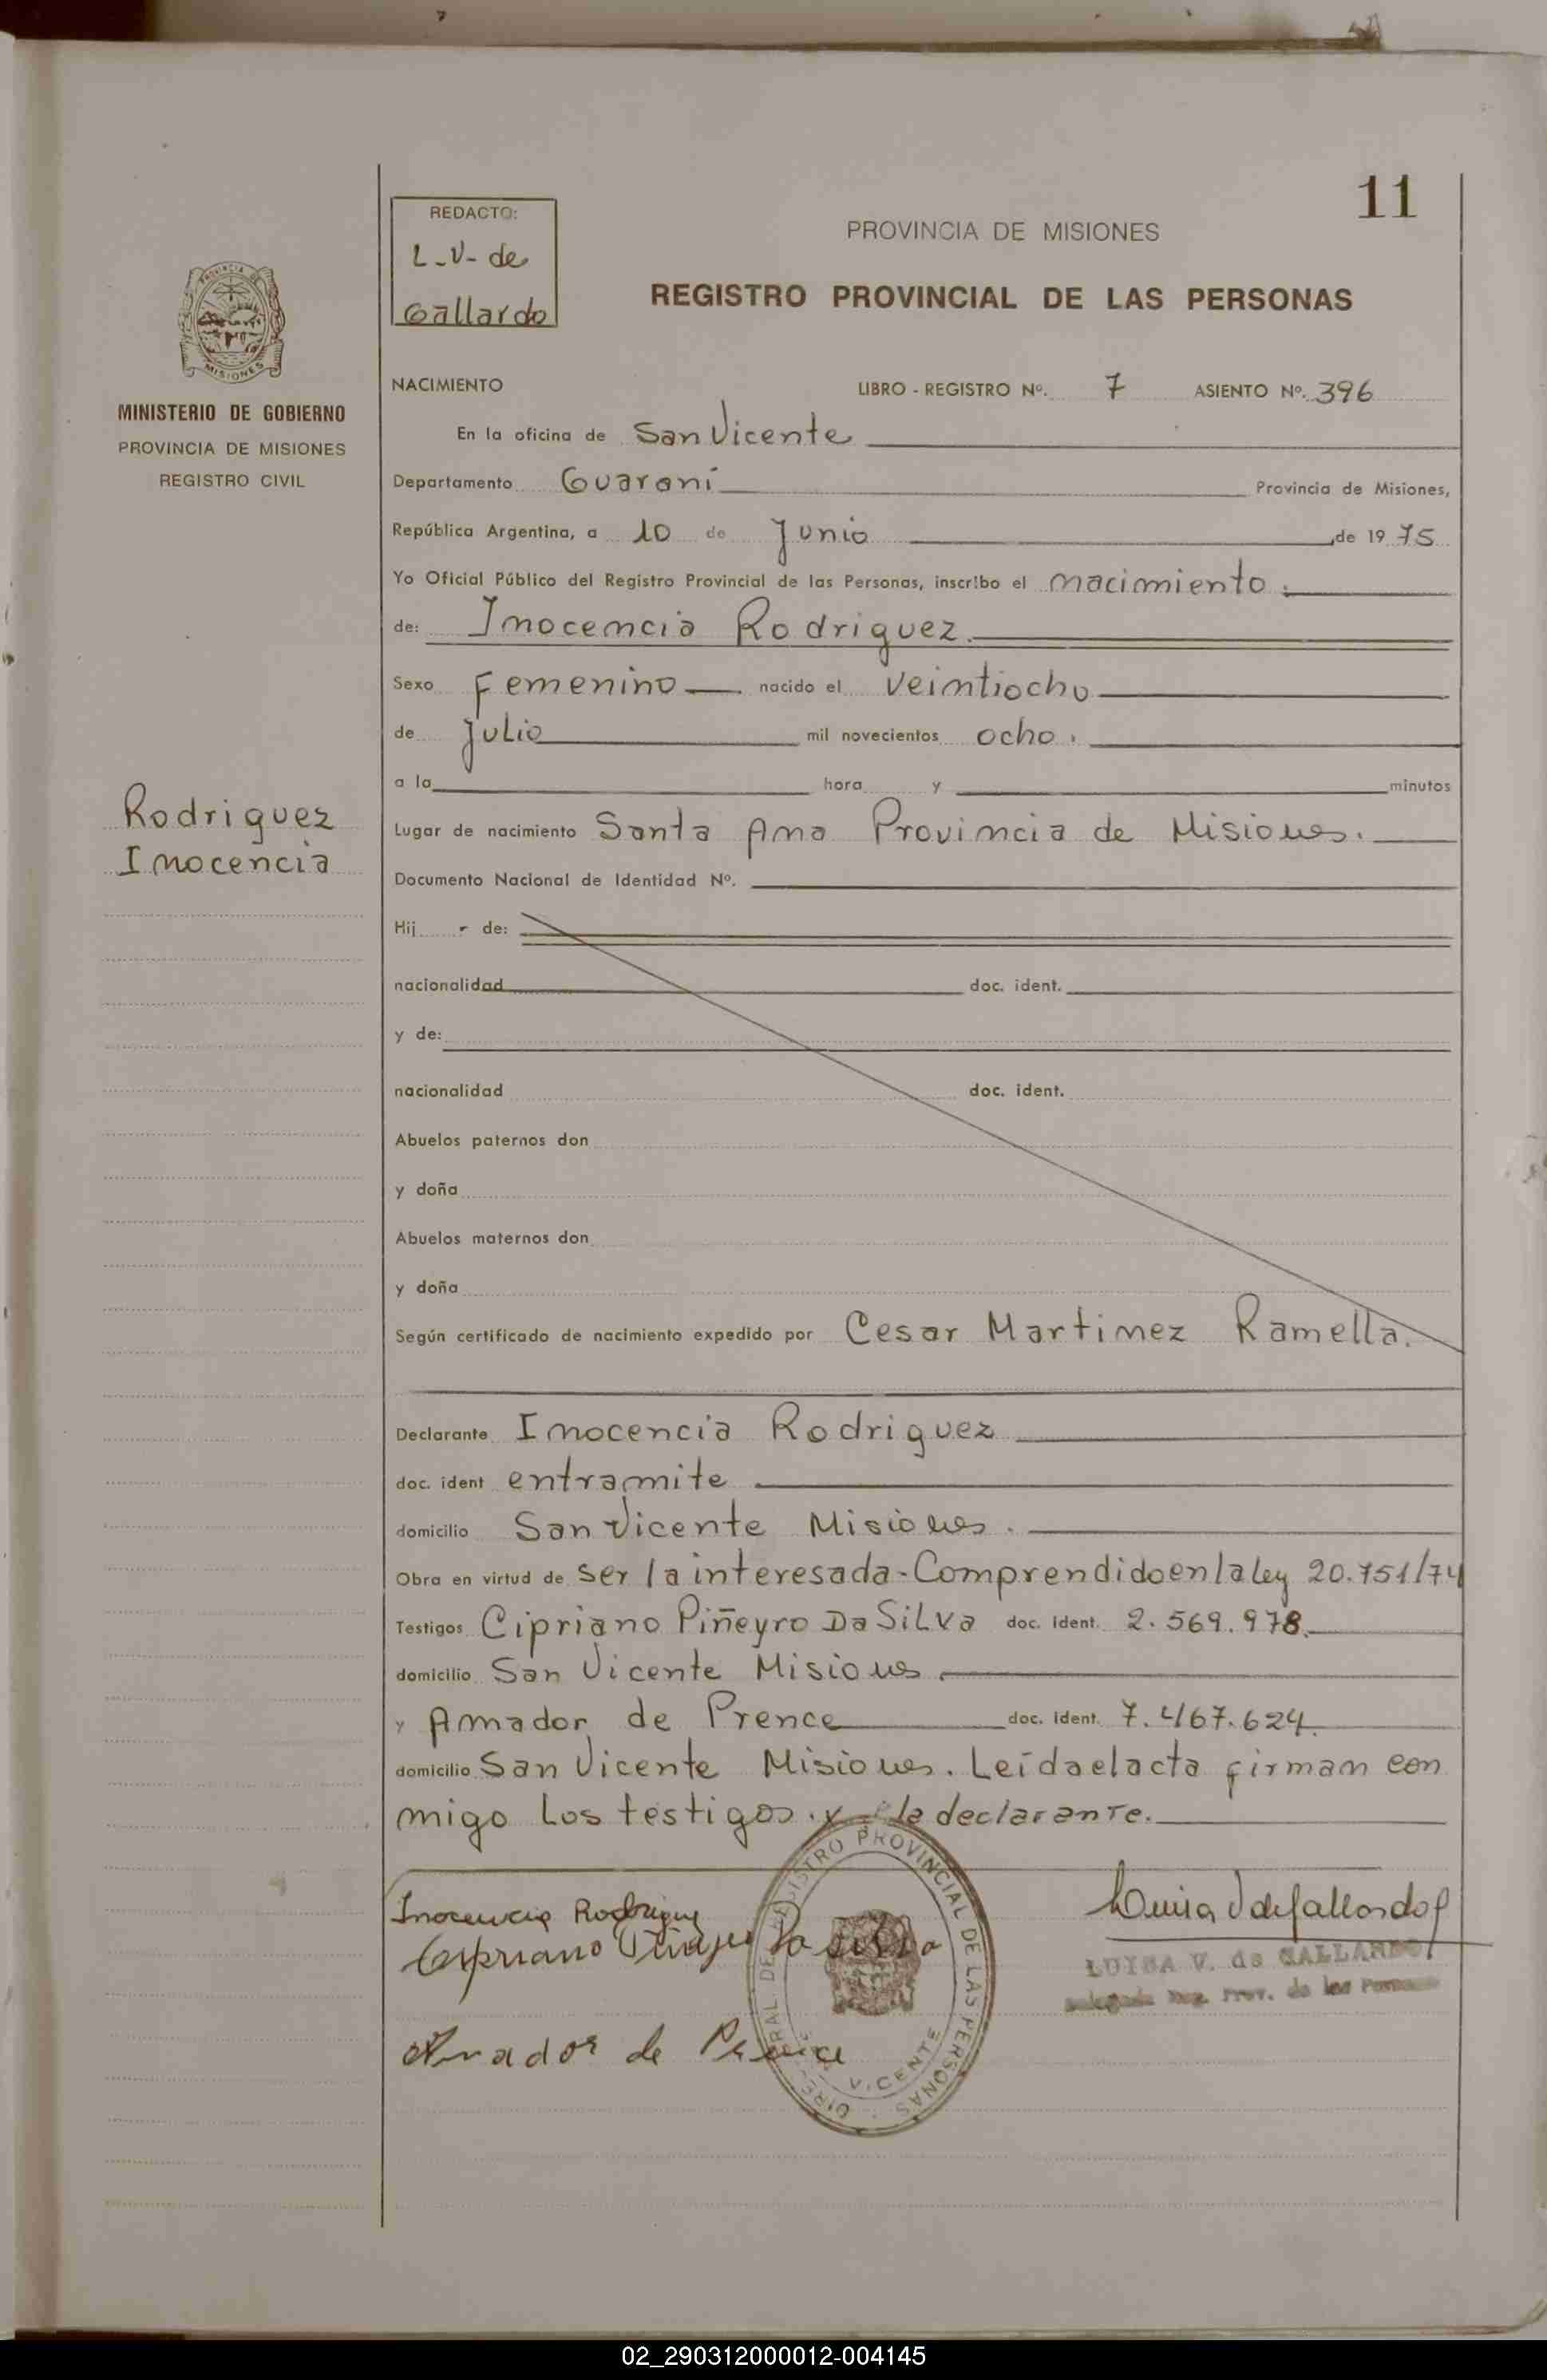 11
REDACTO:
L-V- de
Gallardo
PROVINCIA DE MISIONES
REGISTRO PROVINCIAL DE LAS PERSONAS
MINISTERIO DE GOBIERNO
PROVINCIA DE MISIONES
REGISTRO CIVIL
NACIMIENTO LIBRO - REGISTRO Nº. 7 ASIENTO Nº. 396
En la oficina de San Vicente
Departamento Guaraní Provincia de Misiones,
República Argentina, a 10 de Junio de 1975
Yo Oficial Público del Registro Provincial de las Personas, inscribo el nacimiento.
de: Inocencia Rodriguez.
Sexo Femenino nacido el veintiocho
de Julio mil novecientos ocho.
a la hora y minutos
Rodriguez
Inocencia
Lugar de nacimiento Santa Ana Provincia de Misiones.
Documento Nacional de Identidad Nº.
Hij - de:
nacionalidad doc. ident.
y de:
nacionalidad doc. ident.
Abuelos paternos don
y doña
Abuelos maternos don
y doña
Según certificado de nacimiento expedido por Cesar Martinez Ramella.
Declarante Inocencia Rodriguez
doc. ident entramite
domicilio San Vicente Misiones.
Obra en virtud de ser la interesada-Comprendido en la ley 20.751/74
Testigos Cipriano Piñeyro Da Silva doc. ident. 2.569.978.
domicilio San Vicente Misiones
y Amador de Prence doc. ident. 7.467.624.
domicilio San Vicente Misiones. Leída el acta firman con
migo los testigos y la declarante.
Inocencia Rodriguez
Cipriano Piñeyro Da Silva
Amador de Prence
Luisa V de Gallardo
LUISA V. de GALLARDO
Delegada Reg. Prov. de las Personas
REGISTRO PROVINCIAL DE LAS PERSONAS
V. CENTE
02_290312000012-004145